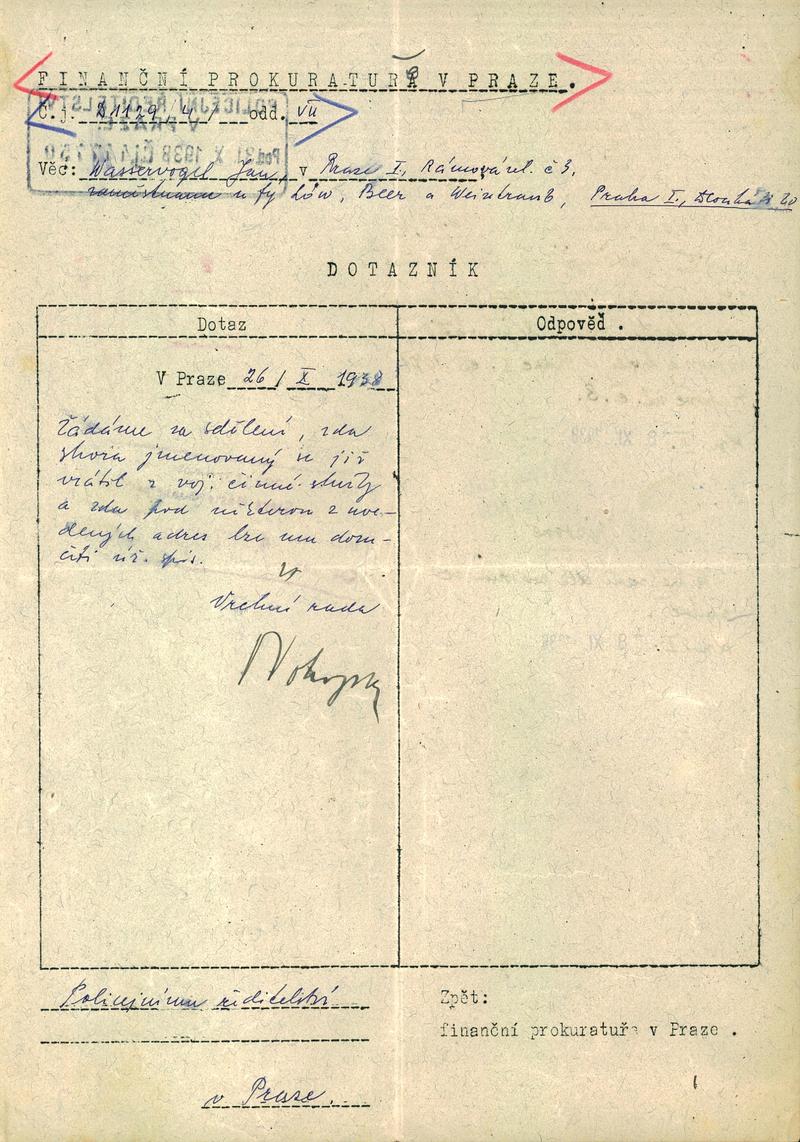 FINANČNÍ PROKURATURA V PRAZE.
Č.j. D 1129/4/ odd. VII
POLICEJNÍ ŘEDITELSTVÍ
V PRAZE
31. X. 1938
Věc: Wasservogel Jan, v Praze I, Rámová ul. č 3,
u fy Löw, Beer a Weintraub, Praha I., Dlouhá 20
DOTAZNÍK
Dotaz
Odpověď.
V Praze 26/X 1938
Žádáme za sdělení, zda
shora jmenovaný se již
vrátil z voj. činné služby
a zda pod některou z uve-
dených adres lze mu doru-
čiti úř. spis.
Vrchní rada
Policejnímu ředitelství
v Praze.
Zpět:
finanční prokuratuře v Praze .